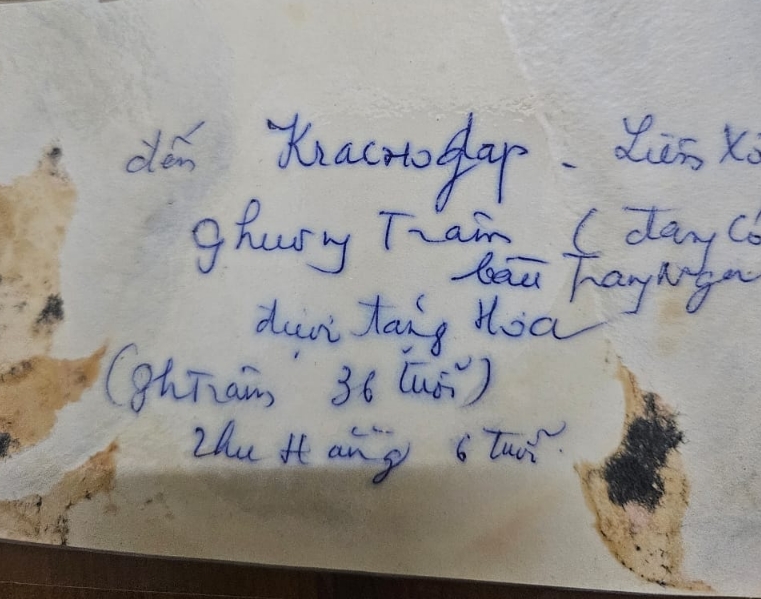 đến Kracнодар - Liên Xô
Phương Trâm ( đang có
bầu TrangNgâ
dưới tầng Hoa
(PhTrâm 36 tuổi)
Thu Hằng 6 tuổi